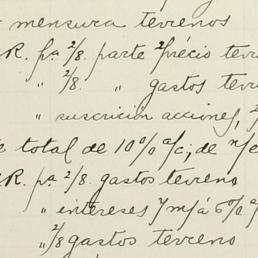 mensura terrenos
R. pa 2/8 parte 2/précio terr
" 2/8 " gastos terr
" suscrición acciones, 2/
total de 10% a/c; de n/c
R. pa 2/8 gastos terreno
" intereses 7 m/ á 6% a/
" 2/8 gastos terreno